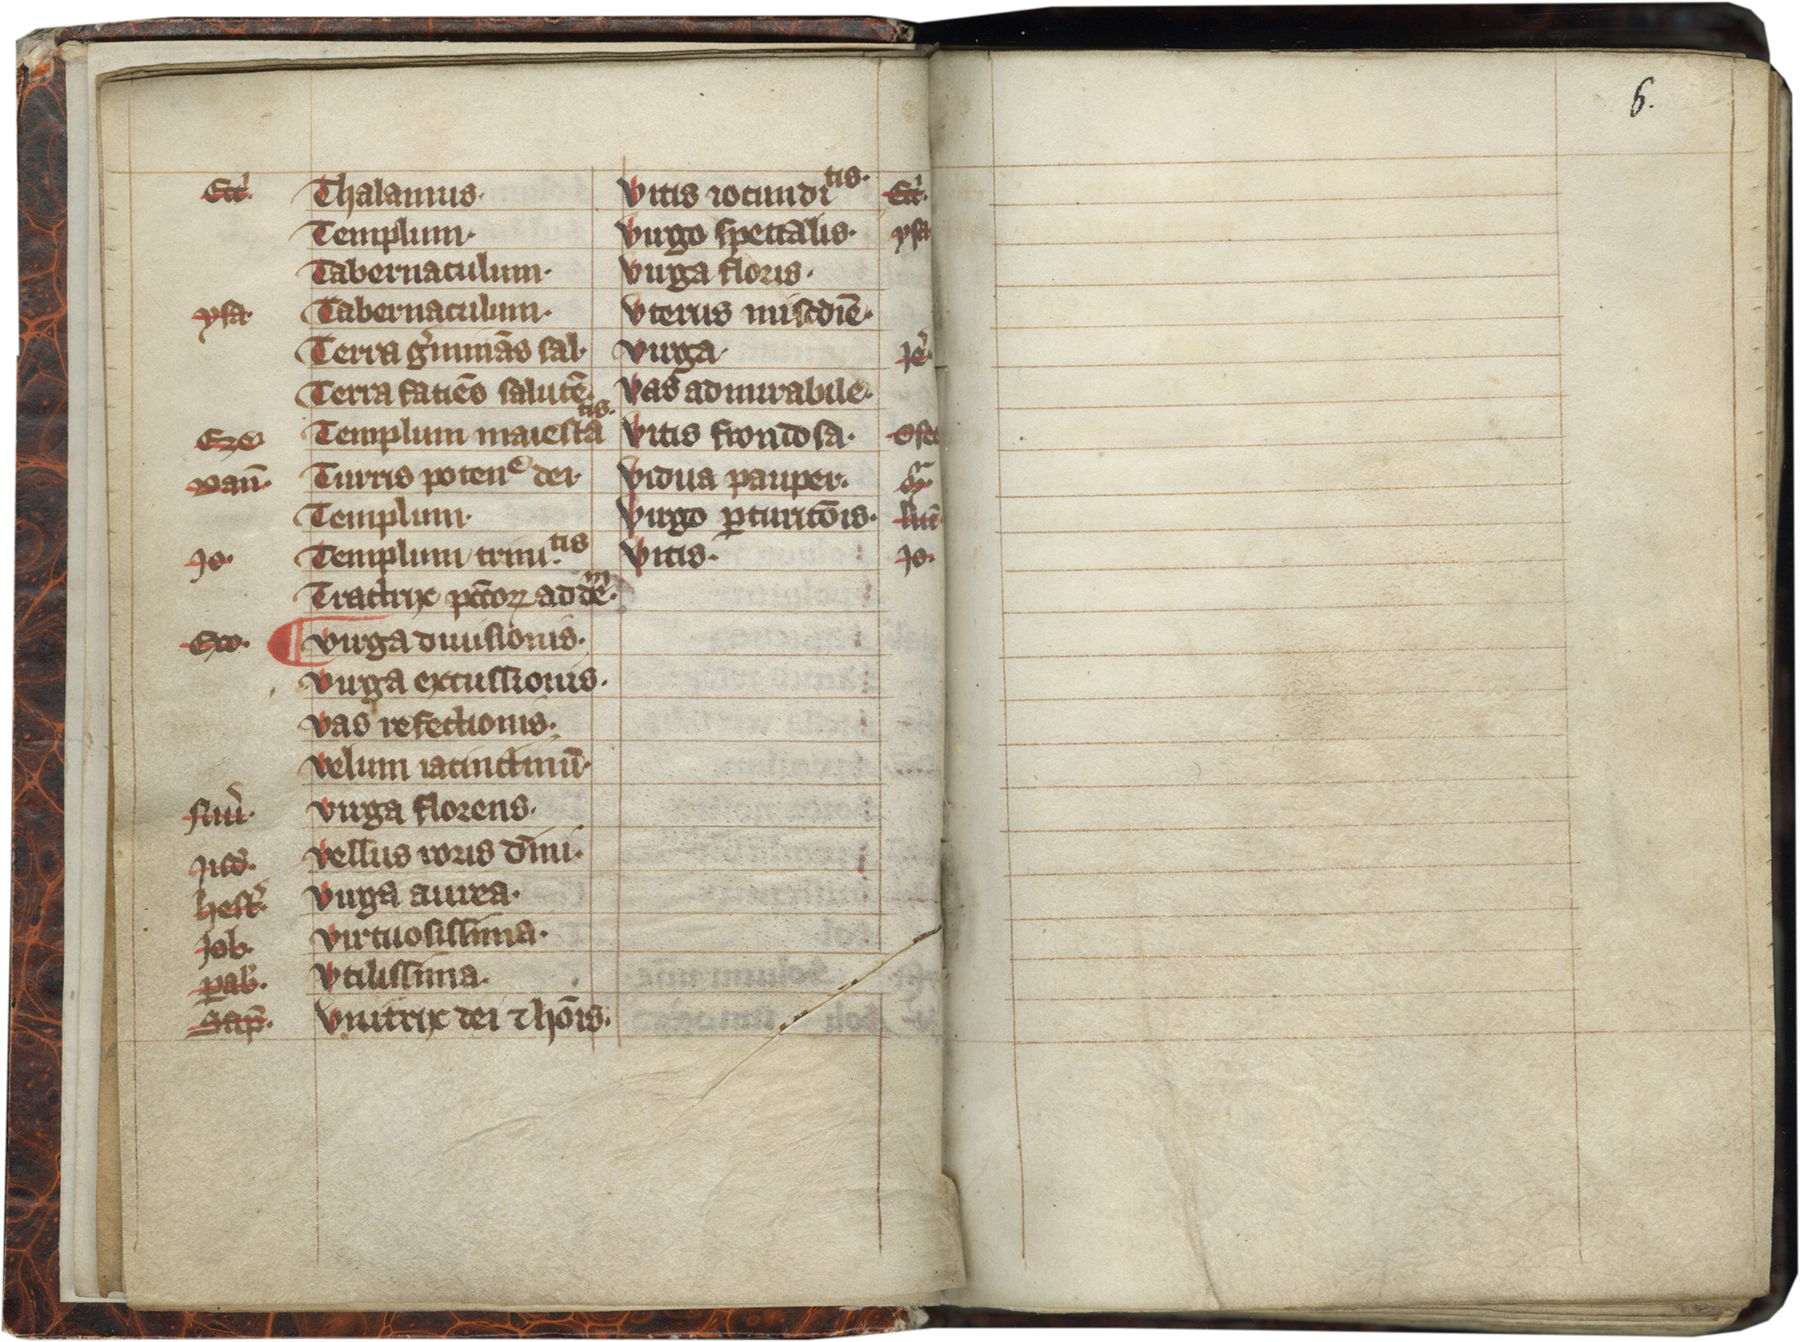 Eccl. Thalamus.
Templum.
Tabernaculum.
ysa. Tabernaculum.
Terra g'minās sal.
Terra faciēs salutē.
Eze. Templum maiestatis.
Dan̄. Turris poten^e dei.
Templum.
Jo. Templum trinitis.
Tractrix pctorꝝ ad dēm.
Exo. ¶ Virga diuisionis.
Virga excussionis.
Vas refectionis.
Velum iacinctinū.
Virga florens.
Jud. Vellus roris dm̄i.
hest'. Virga aurea.
Job. Virtuosissima.
pab'. Vtilissima.
Sap̄. Vnitrix dei ⁊ hōis.
Vitis iocunditis. Eccl.
Virgo spectālis. ysa
Virga floris.
Vterus miscdiē.
Virga. Je'.
Vas admirabile.
Vitis frondosa. Osee
Vidua pauper.
Virgo ꝑturitōis.
Vitis. Jo.
6.